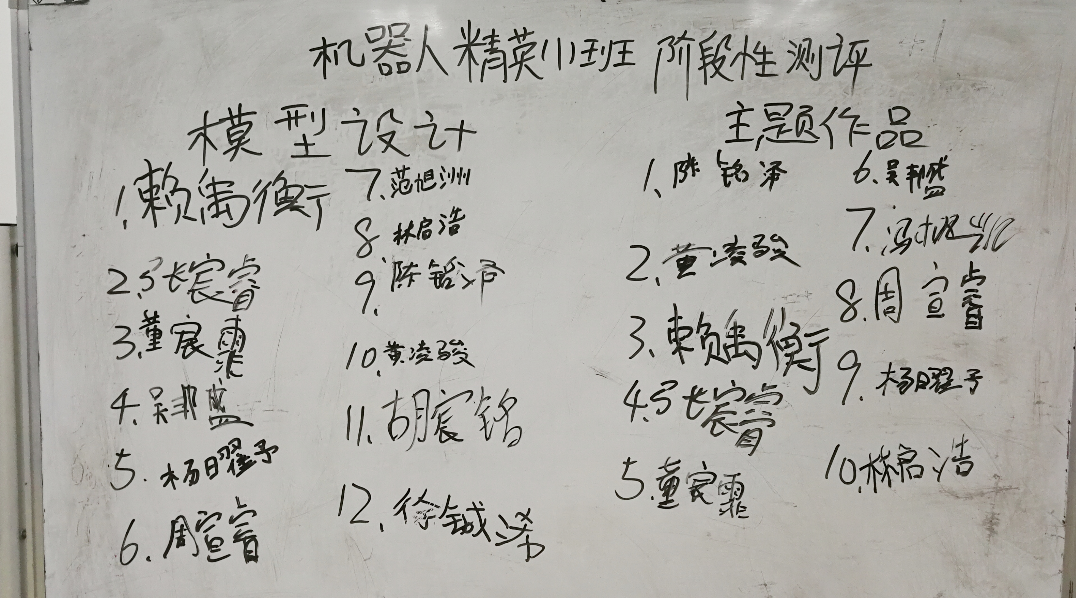 机器人精英小班 阶段性测评
模型设计
1. 赖禹衡
2. 张宸睿
3. 董宸霏
4. 吴邦盛
5. 杨曜予
6. 周宣睿
7. 范旭洲
8. 林启浩
9. 陈铭泽
10. 黄凌骏
11. 胡宸铭
12. 徐铖浠
主题作品
1. 陈铭泽
2. 黄凌骏
3. 赖禹衡
4. 张宸睿
5. 董宸霏
6. 吴
7. 冯
8. 周宣睿
9. 杨曜予
10. 林启浩